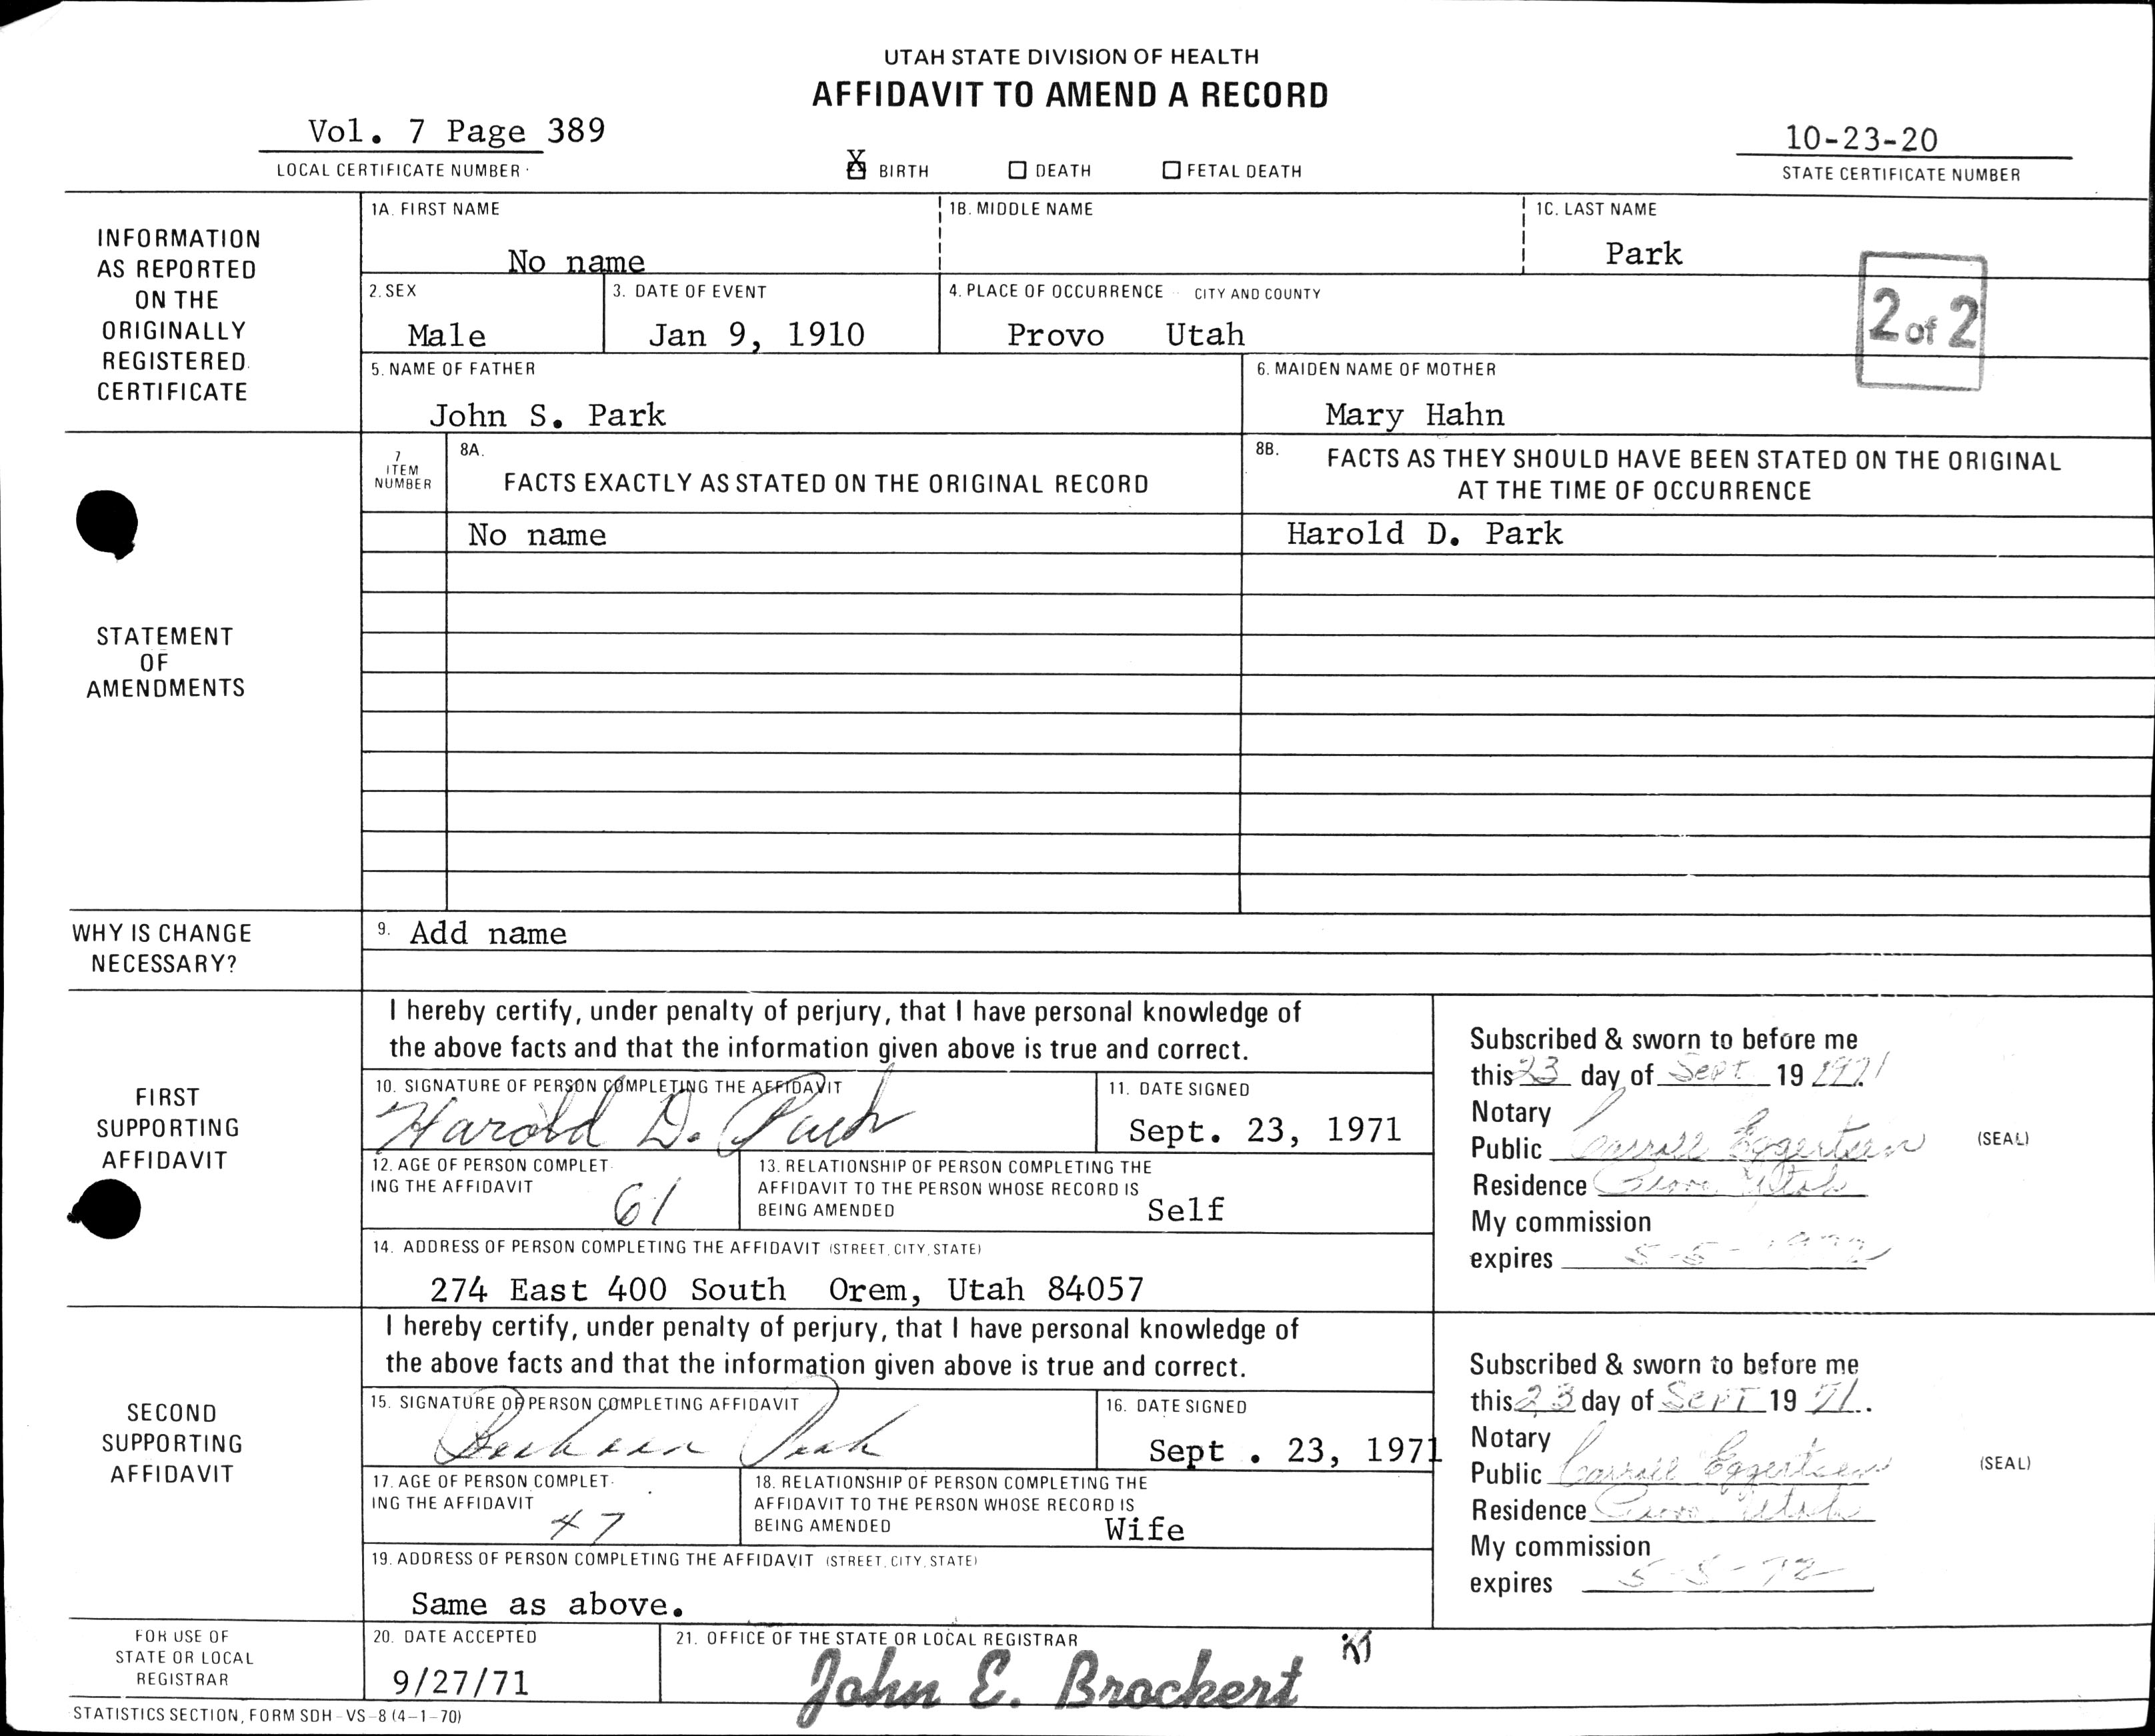 UTAH STATE DIVISION OF HEALTH
AFFIDAVIT TO AMEND A RECORD
Vol. 7 Page 389
LOCAL CERTIFICATE NUMBER
X BIRTH DEATH FETAL DEATH
10-23-20
STATE CERTIFICATE NUMBER
INFORMATION
AS REPORTED
ON THE
ORIGINALLY
REGISTERED
CERTIFICATE
1A. FIRST NAME
No name
1B. MIDDLE NAME
1C. LAST NAME
Park
2. SEX
Male
3. DATE OF EVENT
Jan 9, 1910
4. PLACE OF OCCURRENCE CITY AND COUNTY
Provo Utah
2 of 2
5. NAME OF FATHER
John S. Park
6. MAIDEN NAME OF MOTHER
Mary Hahn
STATEMENT
OF
AMENDMENTS
7
ITEM
NUMBER
8A.
FACTS EXACTLY AS STATED ON THE ORIGINAL RECORD
8B. FACTS AS THEY SHOULD HAVE BEEN STATED ON THE ORIGINAL
AT THE TIME OF OCCURRENCE
No name
Harold D. Park
WHY IS CHANGE
NECESSARY?
9. Add name
FIRST
SUPPORTING
AFFIDAVIT
I hereby certify, under penalty of perjury, that I have personal knowledge of
the above facts and that the information given above is true and correct.
10. SIGNATURE OF PERSON COMPLETING THE AFFIDAVIT
Harold D. Park
11. DATE SIGNED
Sept. 23, 1971
12. AGE OF PERSON COMPLET-
ING THE AFFIDAVIT
61
13. RELATIONSHIP OF PERSON COMPLETING THE
AFFIDAVIT TO THE PERSON WHOSE RECORD IS
BEING AMENDED
Self
14. ADDRESS OF PERSON COMPLETING THE AFFIDAVIT (STREET, CITY, STATE)
274 East 400 South Orem, Utah 84057
Subscribed & sworn to before me
this 23 day of Sept 19 1971
Notary
Public Carroll Eggertsen (SEAL)
Residence Provo Utah
My commission
expires 5-5-1972
SECOND
SUPPORTING
AFFIDAVIT
I hereby certify, under penalty of perjury, that I have personal knowledge of
the above facts and that the information given above is true and correct.
15. SIGNATURE OF PERSON COMPLETING AFFIDAVIT
Park
16. DATE SIGNED
Sept . 23, 1971
17. AGE OF PERSON COMPLET-
ING THE AFFIDAVIT
47
18. RELATIONSHIP OF PERSON COMPLETING THE
AFFIDAVIT TO THE PERSON WHOSE RECORD IS
BEING AMENDED
Wife
19. ADDRESS OF PERSON COMPLETING THE AFFIDAVIT (STREET, CITY, STATE)
Same as above.
Subscribed & sworn to before me
this 23 day of SEPT 19 71.
Notary
Public Carroll Eggertsen (SEAL)
Residence Provo Utah
My commission
expires 5-5-72
FOR USE OF
STATE OR LOCAL
REGISTRAR
20. DATE ACCEPTED
9/27/71
21. OFFICE OF THE STATE OR LOCAL REGISTRAR
John E. Brockert
STATISTICS SECTION, FORM SDH-VS-8 (4-1-70)